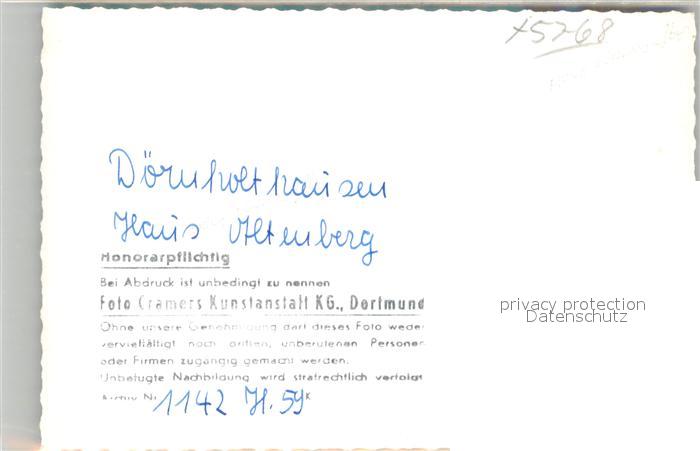 x5768
Dörnholthausen
Haus Altenberg
Honorarpflichtig
Bei Abdruck ist unbedingt zu nennen
Foto Cramers Kunstanstalt KG., Dortmund
Ohne unsere Genehmigung darf dieses Foto weder
vervielfältigt noch dritten, unberufenen Personen
oder Firmen zugängig gemacht werden.
Unbefugte Nachbildung wird strafrechtlich verfolgt
Archiv Nr 1142 H. 59 K
privacy protection
Datenschutz